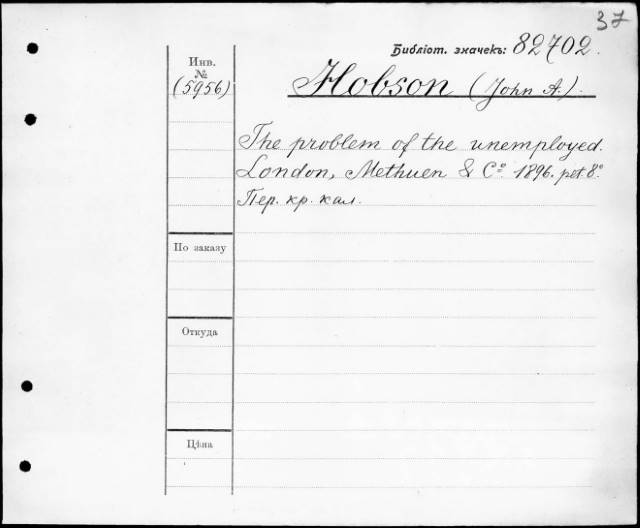 37
Библіот. значекъ: 82702.
Инв.
№
(5956)
Hobson (John A.).
The problem of the unemployed.
London, Methuen & Cº 1896. pet. 8º
Пер. кр. кал.
По заказу
Откуда
Цѣна